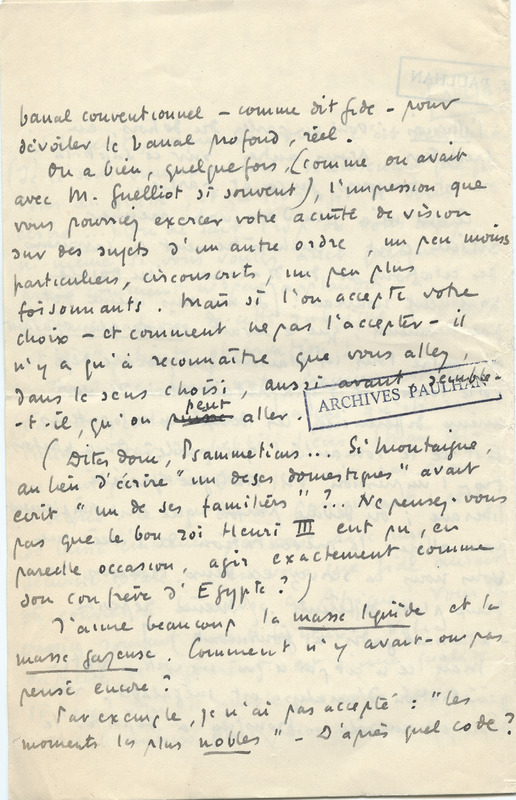 banal conventionnel – comme dit Gide – pour
dévoiler le banal profond, réel.
On a bien, quelquefois, (comme on avait
avec M. Guelliot si souvent), l'impression que
vous pourriez exercer votre acuité de vision
sur des sujets d'un autre ordre, un peu moins
particuliers, circonscrits, un peu plus
foisonnants. Mais si l'on accepte votre
choix – et comment ne pas l'accepter – il
n'y a qu'à reconnaître que vous allez,
dans le sens choisi, aussi avant, semble-
-t-il, qu'on peut aller.
ARCHIVES PAULHAN
(Dites donc, Psammeticus... Si Montaigne,
au lieu d'écrire "un de ses domestiques" avait
écrit "un de ses familiers"?.. Ne pensez-vous
pas que le bon roi Henri III eut pu, en
pareille occasion, agir exactement comme
son confrère d'Egypte?)
J'aime beaucoup la masse liquide et la
masse gazeuse. Comment n'y avait-on pas
pensé encore?
Par exemple, je n'ai pas accepté : "les
moments les plus nobles" – D'après quel code?